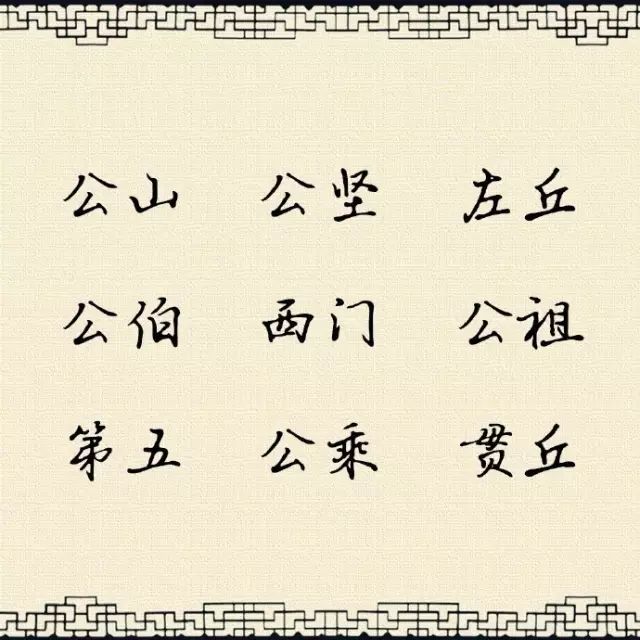 公山 公坚 左丘
公伯 西门 公祖
第五 公乘 贯丘